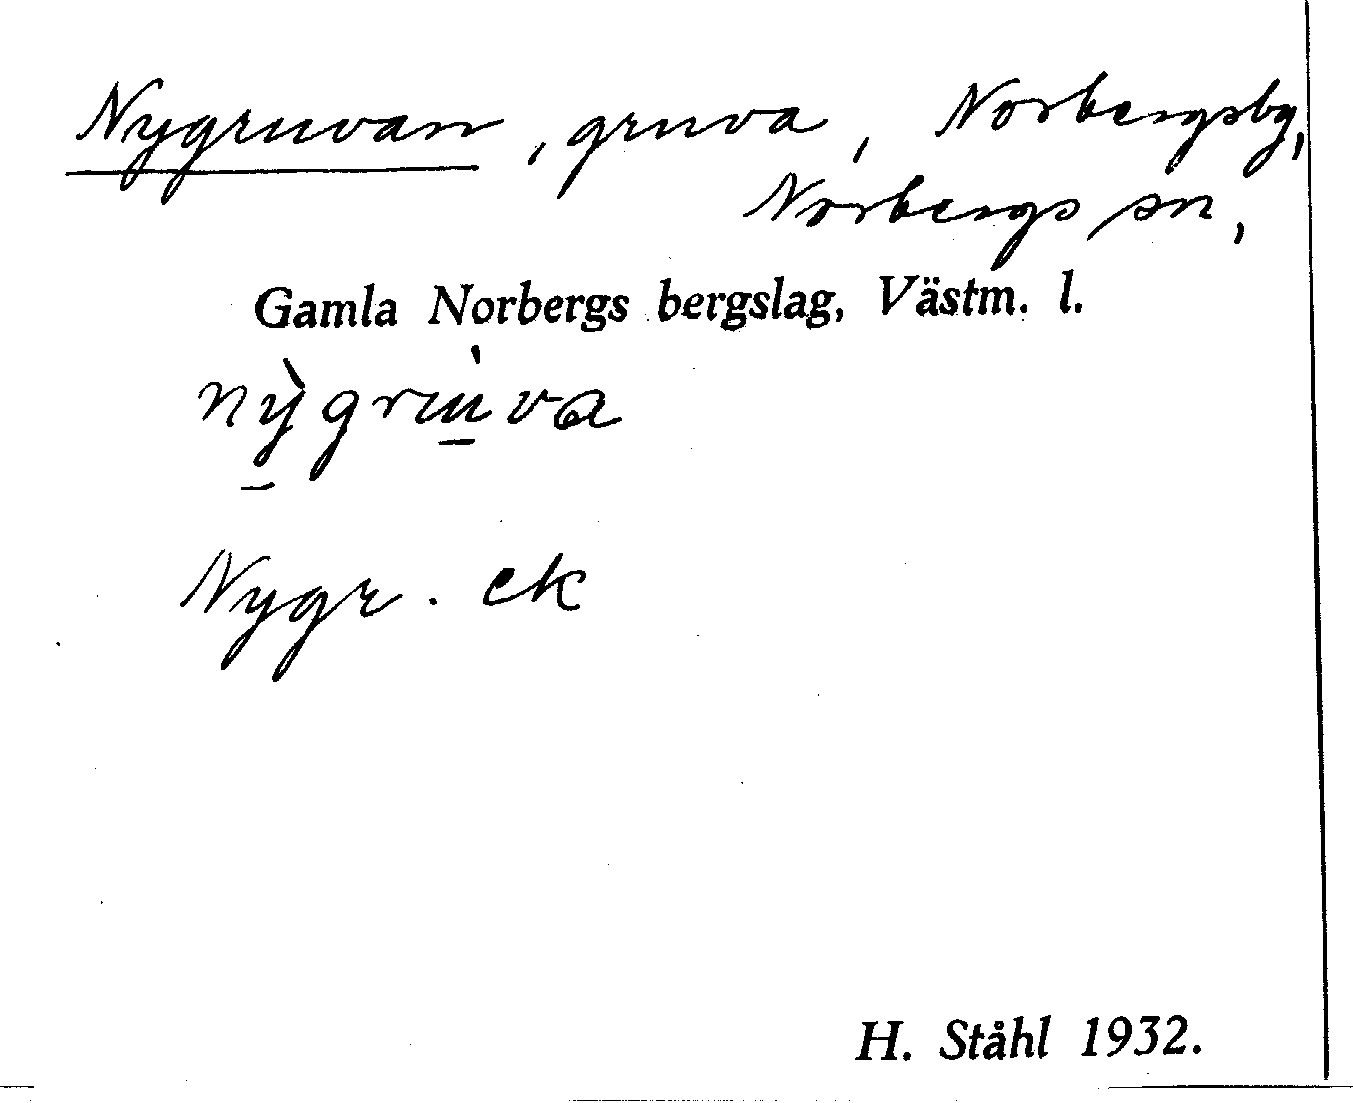 Nygruvan, gruva, Norbergsbg,
Norbergs sn,
Gamla Norbergs bergslag, Västm. l.
nỳ̠grù̠va
Nygr. ek
H. Ståhl 1932.